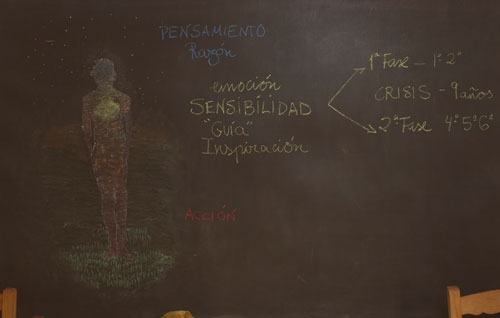 PENSAMIENTO
Razón
emoción
SENSIBILIDAD
"GUÍA"
Inspiración
1ª Fase - 1º 2º
CRISIS - 9 años
2ª Fase 4º 5º 6º
ACCIÓN